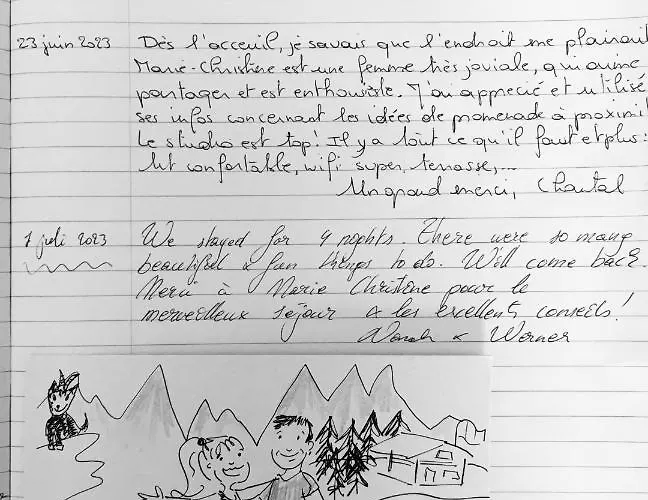 23 juin 2023 Dès l'acceuil, je savais que l'endroit me plairait
Marie-Christine est une femme très joviale, qui aime
partager et est enthousiste. J'ai apprecié et utilisé
ses infos concernant les idées de promenade à proximi
Le studio est top! Il y a tout ce qu'il faut et plus:
lit confortable, wifi super, terrasse,...
Un grand merci, Chantal
1 juli 2023 We stayed for 4 nights. There were so many
beautiful & fun things to do. Will come back.
Merci à Marie Christine pour le
merveilleux séjour & les excellents conseils!
& Werner